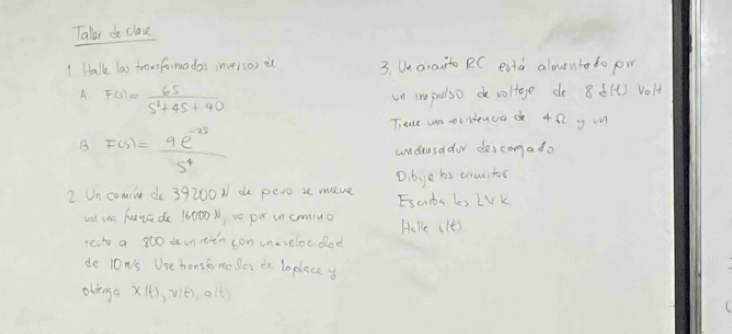 Taller de clase
1 Halle las transformadas inversas de
A F(s) = 6s / s²+4s+40
B F(s) = 9e^-2s / s⁴
2 Un camión de 39200 N de peso se mueve
con una fuerza de 16000 N, va por un camino
recto a 800 de un retén con una velocidad
de 10 m/s Use transformadas de laplace y
obtenga x(t), v(t), a(t)
3. Un circuito RC está alimentado por
un impulso de voltaje de 8 δ(t) Volt
Tiene una resistencia de 4Ω y un
condensador descargado
Dibuje los circuitos
Escriba las LVK
Halle i(t)